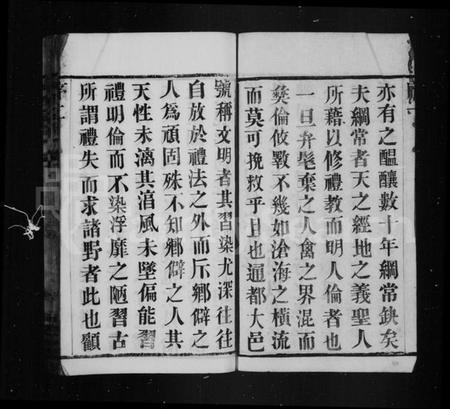 亦有之醞釀數十年綱常缺矣
夫綱常者天之經地之義聖人
所藉以修禮教而明人倫者也
一旦弁髦棄之人禽之界混而
彝倫攸斁不幾如滄海之橫流
而莫可挽救乎且也通都大邑
號稱文明者其習染尤深往往
自放於禮法之外而斥鄉僻之
人為頑固殊不知鄉僻之人其
天性未漓其淯風未墜偏能習
禮明倫而不染浮靡之陋習古
所謂禮失而求諸野者此也顧